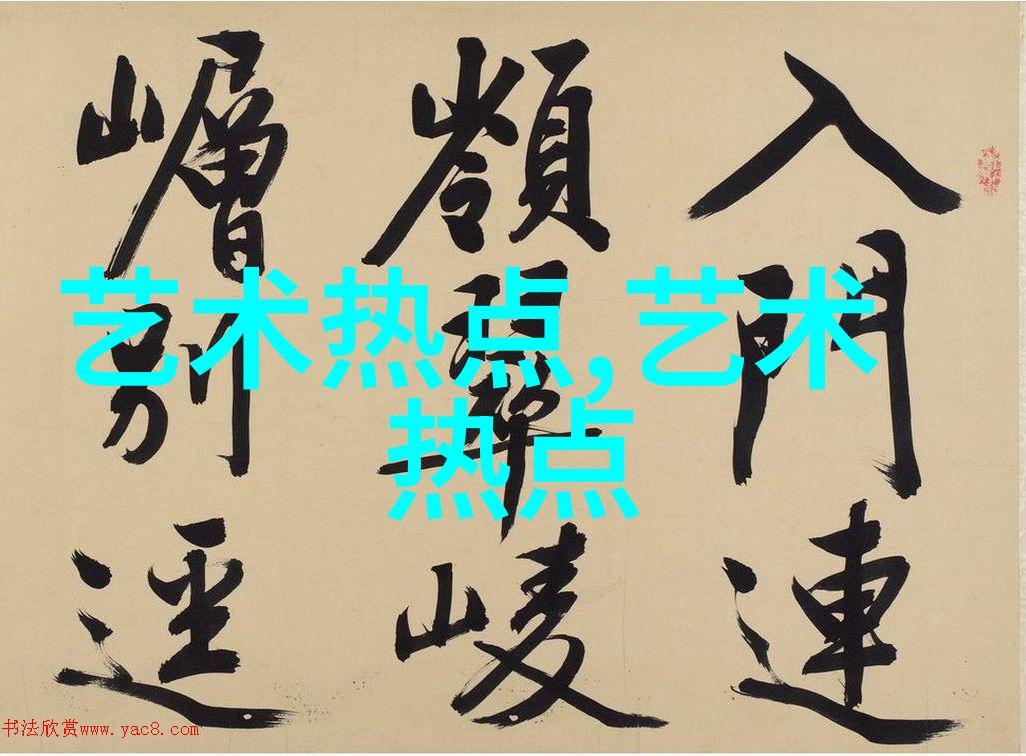 入門連
嶺翠崚
嶒別逕
艺术热点,艺术
热点
书法欣赏www.yac8.com